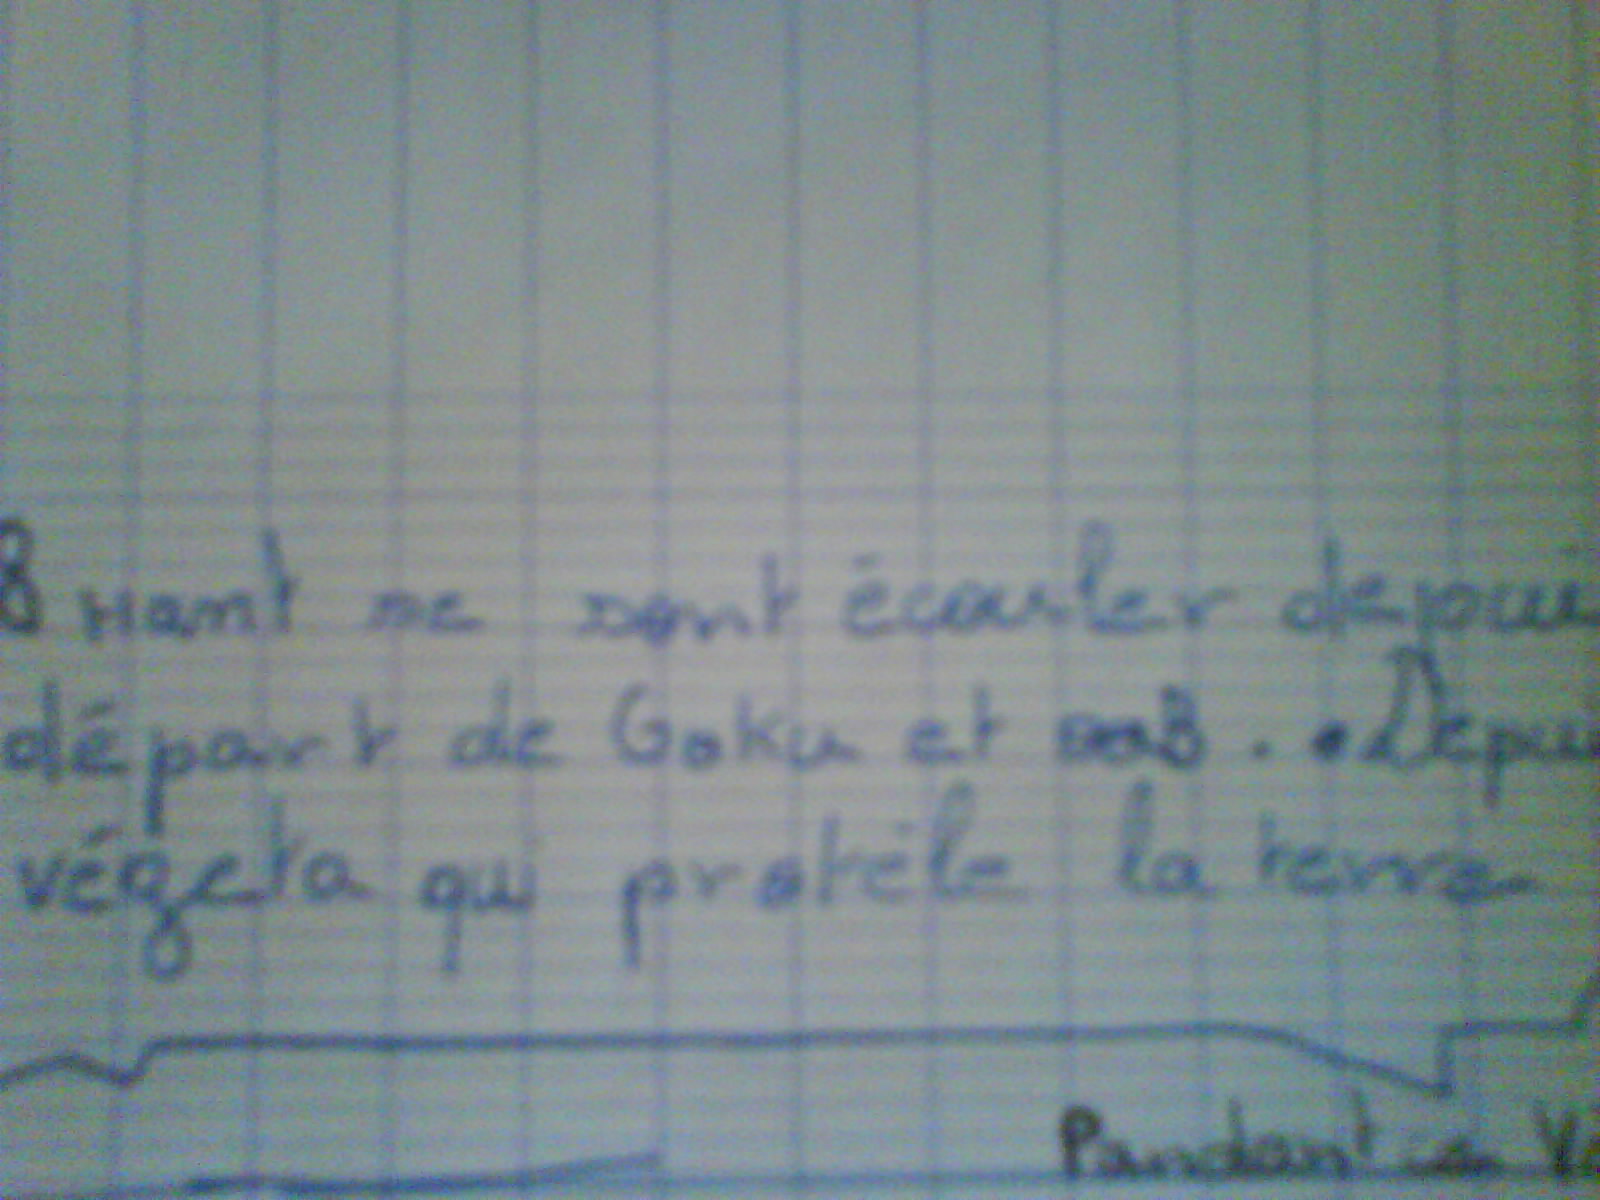 8 Hant se sont écouler depui
départ de Goku et . Depui
végeta qui protéle la terre
Pandant